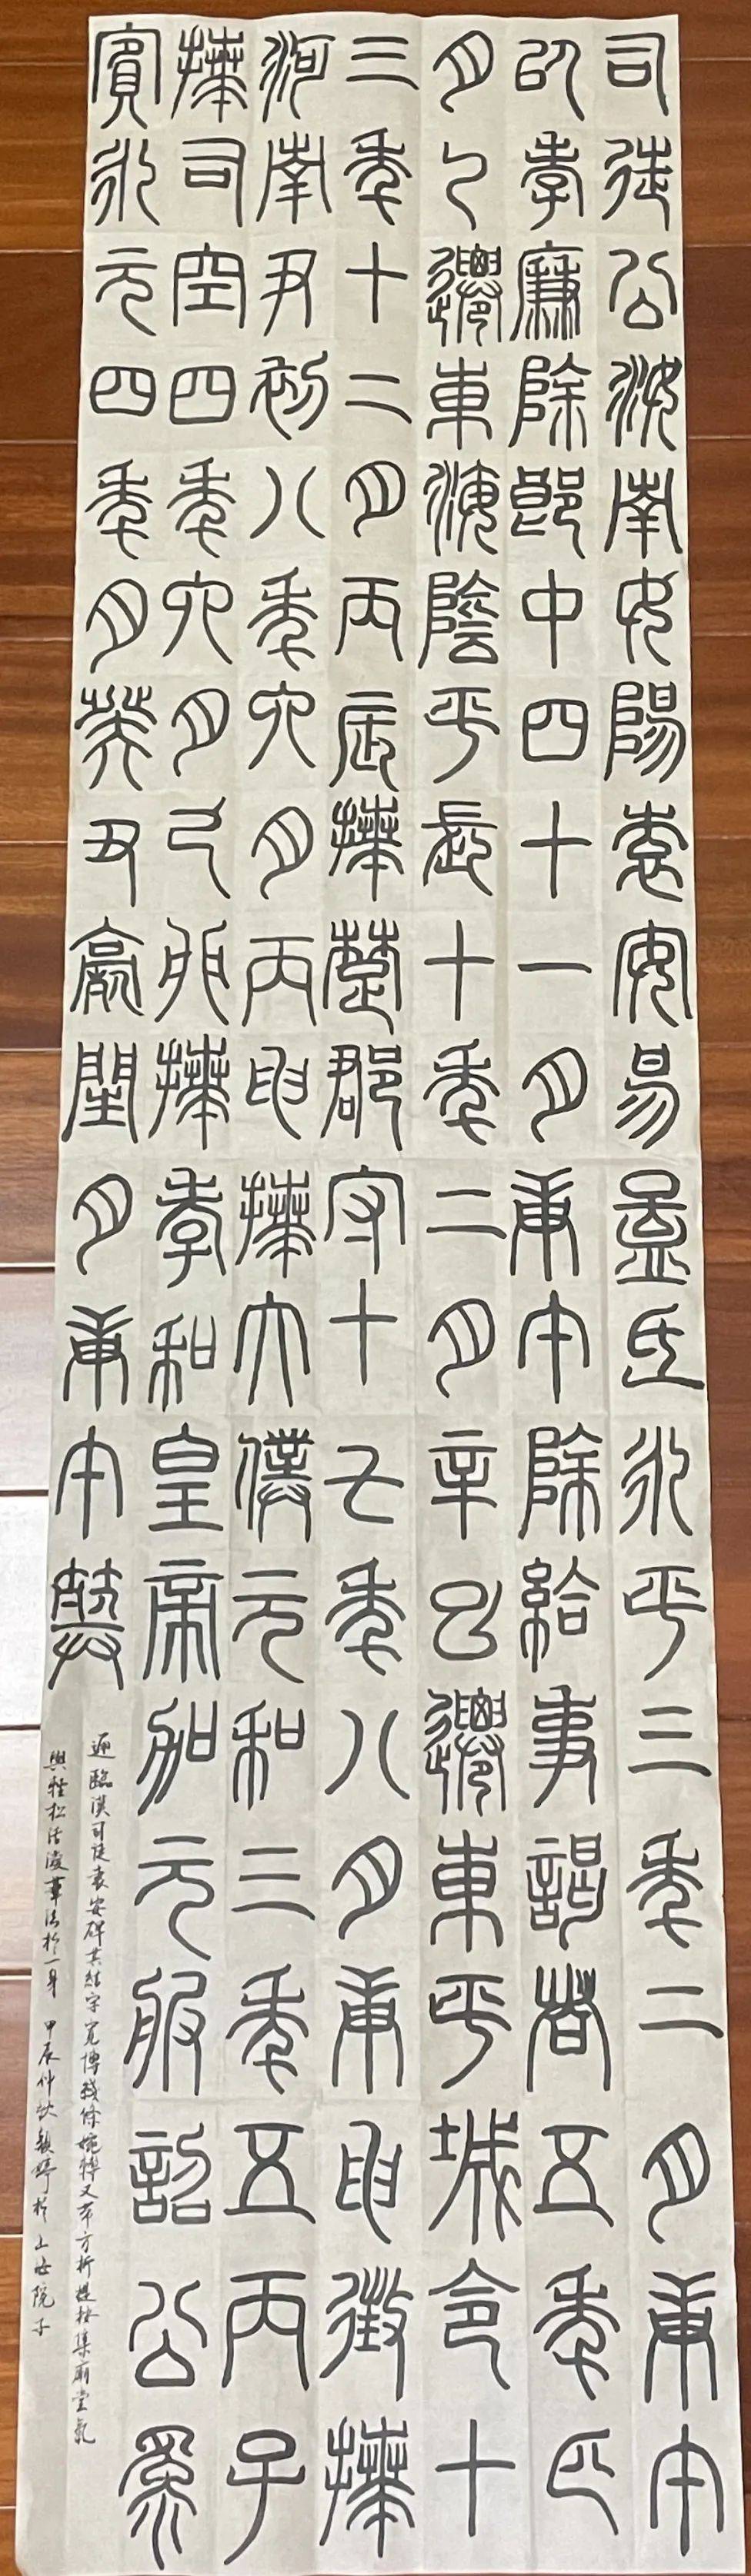 司徒公汝南女陽袁安易孟氏永平三年二月庚午
以孝廉除郎中四十一月庚午除給事謁者五年正
月乙遷東海陰平長十年二月辛巳遷東平城令十
三年十二月丙辰拜楚郡守十七年八月庚申徵拜
河南尹初八年六月丙申拜大僕元和三年五月丙子
拜司空四年六月己卯拜孝和皇帝加元服詔公為
賓永元四年月癸丑薨閏月庚午葬
臨漢司徒袁安碑其結字寬博綫條婉轉又方折提按集廟堂氣
與松活筆法於一身 甲辰仲秋 於上院子